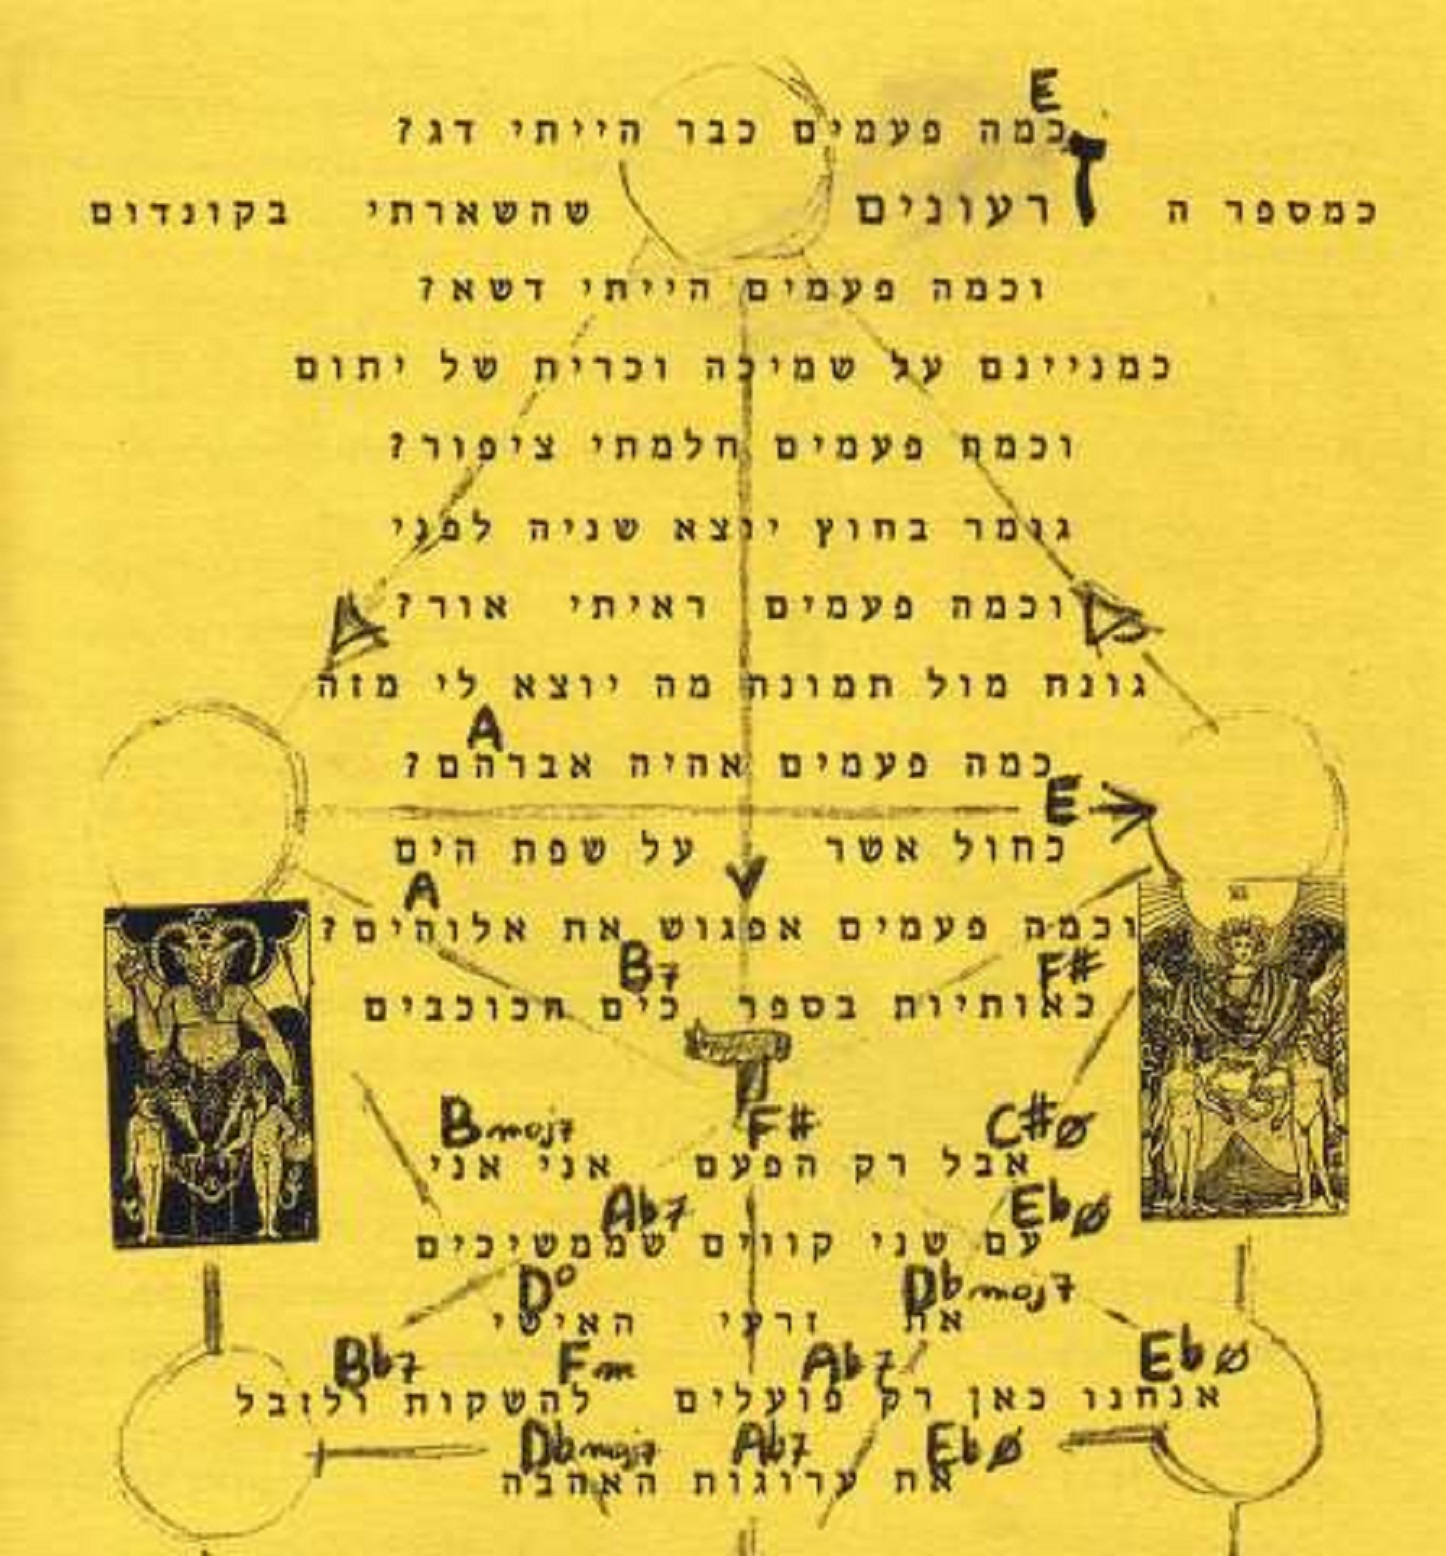 E
כמה פעמים כבר הייתי דג?
כמספר ה זרעונים שהשארתי בקונדום
וכמה פעמים הייתי דשא?
כמניינם על שמיכה וכרית של יתום
וכמה פעמים חלמתי ציפור?
גומר בחוץ יוצא שניה לפני
וכמה פעמים ראיתי אור?
גונח מול תמונה מה יוצא לי מזה
A
כמה פעמים אהיה אברהם?
E
כחול אשר על שפת הים
A
וכמה פעמים אפגוש את אלוהים?
B7 F#
כאותיות בספר כים הכוכבים
Bmaj7 F# C#ø
אבל רק הפעם אני אני
Ab7 Ebø
עם שני קווים שממשיכים
D° Dbmaj7
את זרעי האישי
Bb7 Fm Ab7 Ebø
אנחנו כאן רק פועלים להשקות ולזבל
Dbmaj7 Ab7 Ebø
את ערוגות האהבה